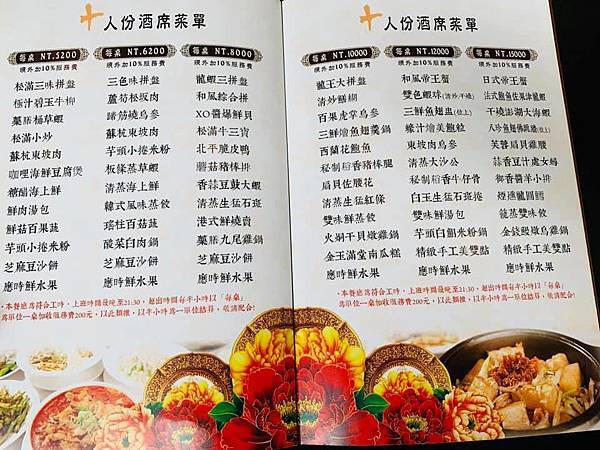 十人份酒席菜單
每桌 NT.5200
額外加10%服務費
松滿三味拼盤
極汁碧玉牛柳
藥膳桶草蝦
松滿小炒
蘇杭東坡肉
咖哩海鮮豆腐煲
糖醋海上鮮
鮮肉湯包
鮮菇百果蔬
芋頭小捲米粉
芝麻豆沙餅
應時鮮水果
每桌 NT.6200
額外加10%服務費
三色味拼盤
蘆筍松坂肉
蹄筋燒烏參
蘇杭東坡肉
芋頭小捲米粉
板條蒸草蝦
清蒸海上鮮
韓式風味蒸餃
瑤柱百菇蔬
酸菜白肉鍋
芝麻豆沙餅
應時鮮水果
每桌 NT.8000
額外加10%服務費
龍蝦三拼盤
和風綜合拼
XO醬爆鮮貝
松滿牛三寶
北平脆皮鴨
蘑菇豬棒排
香蒜豆鼓大蝦
清蒸生猛石斑
港式鮮燒賣
藥膳九尾雞鍋
芝麻豆沙餅
應時鮮水果
·本餐廳為符合工時，上班時間最晚至21:30，超出時間每半小時以「每桌」
為單位一桌加收服務費200元，以此類推，以半小時為一單位結算，敬請配合!
十人份酒席菜單
每桌 NT.10000
額外加10%服務費
龍王大拼盤
清炒鱔糊
百果虎掌烏參
三鮮燴魚翅羹鍋
西蘭花鮑魚
秘制稻香豬棒腿
扇貝佐龍花
清蒸生猛紅條
雙味鮮蒸餃
火焗干貝燉雞鍋
金玉滿堂南瓜糕
應時鮮水果
每桌 NT.12000
額外加10%服務費
和風帝王蟹
雙色蝦球(清炒.干燒)
三鮮魚翅盅(位上)
蠔汁燴美鮑粒
東坡肉烏參
清蒸大沙公
秘制稻香牛仔骨
白玉生猛石斑捲
雙味鮮湯包
芋頭白鯧米粉鍋
精緻手工美雙點
應時鮮水果
每桌 NT.15000
額外加10%服務費
日式帝王蟹
法式鮑魚佐果津龍蝦
干燒澎湖大海蝦
八珍魚翅佛跳牆(位上)
芙蓉扇貝雞腰
蒜香豆汁處女蟳
御香醬羊小排
煙燻龍圓鱈
籠蒸雙味餃
金錢鰻燉烏雞鍋
精緻手工美雙點
應時鮮水果
·本餐廳為符合工時，上班時間最晚至21:30，超出時間每半小時以「每桌」
為單位一桌加收服務費200元，以此類推，以半小時為一單位結算，敬請配合!